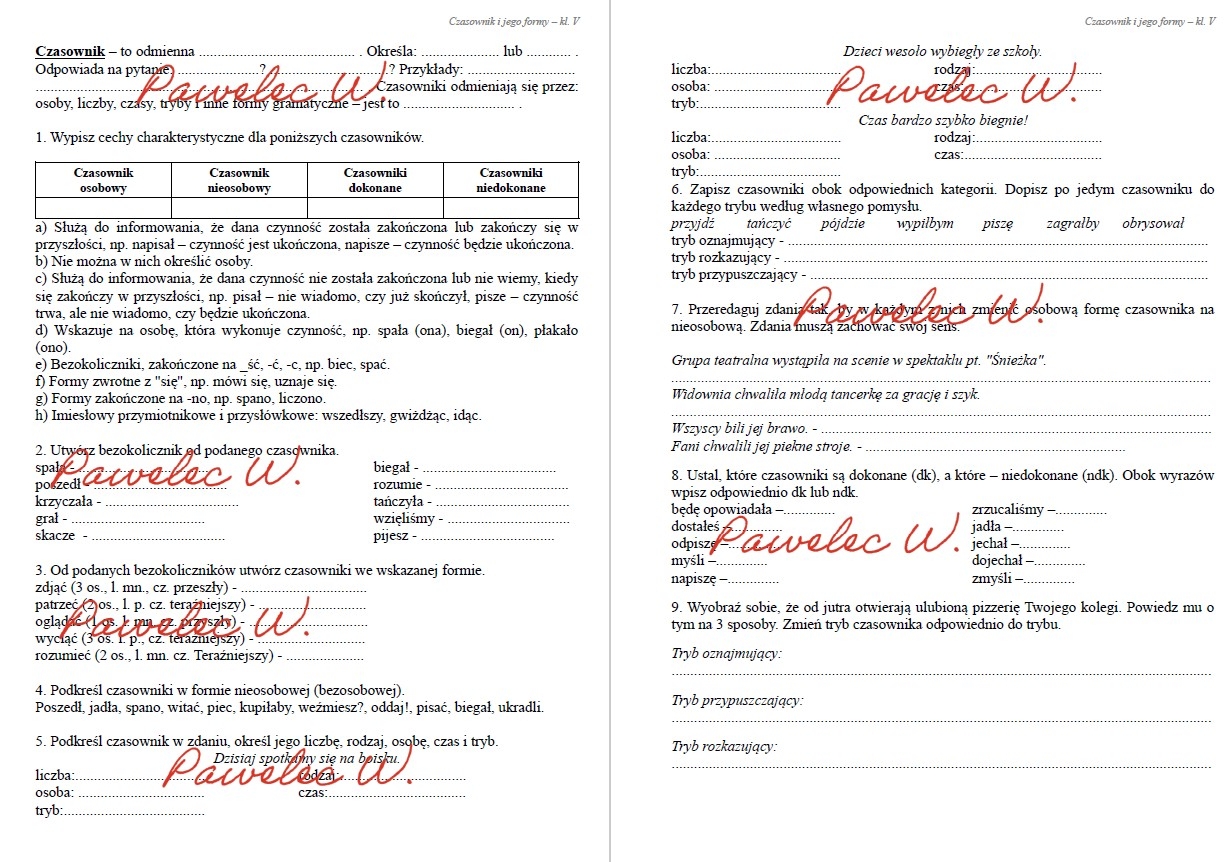 Czasownik i jego formy – kl. V
Czasownik – to odmienna .......................................... . Określa: ..................... lub ............ .
Odpowiada na pytanie ........................ ? ................................ ? Przykłady: .............................
............................................................................................ Czasowniki odmieniają się przez:
osoby, liczby, czasy, tryby i inne formy gramatyczne – jest to .............................. .
Pawelec W.
1. Wypisz cechy charakterystyczne dla poniższych czasowników.
Czasownik osobowy | Czasownik nieosobowy | Czasowniki dokonane | Czasowniki niedokonane
a) Służą do informowania, że dana czynność została zakończona lub zakończy się w
przyszłości, np. napisał – czynność jest ukończona, napisze – czynność będzie ukończona.
b) Nie można w nich określić osoby.
c) Służą do informowania, że dana czynność nie została zakończona lub nie wiemy, kiedy
się zakończy w przyszłości, np. pisał – nie wiadomo, czy już skończył, pisze – czynność
trwa, ale nie wiadomo, czy będzie ukończona.
d) Wskazuje na osobę, która wykonuje czynność, np. spała (ona), biegał (on), płakało
(ono).
e) Bezokoliczniki, zakończone na _ść, -ć, -c, np. biec, spać.
f) Formy zwrotne z "się", np. mówi się, uznaje się.
g) Formy zakończone na -no, np. spano, liczono.
h) Imiesłowy przymiotnikowe i przysłówkowe: wszedłszy, gwiżdżąc, idąc.
2. Utwórz bezokolicznik od podanego czasownika.
spała - .................................... biegał - ....................................
poszedł - .................................... rozumie - ....................................
krzyczała - .................................... tańczyła - ....................................
grał - .................................... wzięliśmy - .................................
skacze - .................................... pijesz - ....................................
Pawelec W.
3. Od podanych bezokoliczników utwórz czasowniki we wskazanej formie.
zdjąć (3 os., l. mn., cz. przeszły) - ..................................
patrzeć (2 os., l. p. cz. teraźniejszy) - .............................
oglądać (1 os. l. mn. cz. przyszły) - ................................
wyciąć (3 os. l. p., cz. teraźniejszy) - .............................
rozumieć (2 os., l. mn. cz. Teraźniejszy) - .....................
Pawelec W.
4. Podkreśl czasowniki w formie nieosobowej (bezosobowej).
Poszedł, jadła, spano, witać, piec, kupiłaby, weźmiesz?, oddaj!, pisać, biegał, ukradli.
5. Podkreśl czasownik w zdaniu, określ jego liczbę, rodzaj, osobę, czas i tryb.
Dzisiaj spotkamy się na boisku.
liczba:................................... rodzaj:..................................
osoba: .................................. czas:.....................................
tryb:......................................
Pawelec W.
Czasownik i jego formy – kl. V
Dzieci wesoło wybiegły ze szkoły.
liczba:................................... rodzaj:..................................
osoba: .................................. czas:.....................................
tryb:......................................
Pawelec W.
Czas bardzo szybko biegnie!
liczba:................................... rodzaj:..................................
osoba: .................................. czas:.....................................
tryb:......................................
6. Zapisz czasowniki obok odpowiednich kategorii. Dopisz po jedym czasowniku do
każdego trybu według własnego pomysłu.
przyjdź tańczyć pójdzie wypiłbym piszę zagrałby obrysował
tryb oznajmujący - ..................................................................................................
tryb rozkazujący - ..................................................................................................
tryb przypuszczający - ............................................................................................
7. Przeredaguj zdania tak, by w każdym z nich zmienić osobową formę czasownika na
nieosobową. Zdania muszą zachować swój sens.
Pawelec W.
Grupa teatralna wystąpiła na scenie w spektaklu pt. "Śnieżka".
..................................................................................................................................
Widownia chwaliła młodą tancerkę za grację i szyk.
..................................................................................................................................
Wszyscy bili jej brawo. - ..........................................................................................
Fani chwalili jej piekne stroje. - ......................................................................
8. Ustal, które czasowniki są dokonane (dk), a które – niedokonane (ndk). Obok wyrazów
wpisz odpowiednio dk lub ndk.
będę opowiadała –.............. zrzucaliśmy –..............
dostałeś –.............. jadła –..............
odpiszę –.............. jechał –..............
myśli –.............. dojechał –..............
napiszę –.............. zmyśli –..............
Pawelec W.
9. Wyobraź sobie, że od jutra otwierają ulubioną pizzerię Twojego kolegi. Powiedz mu o
tym na 3 sposoby. Zmień tryb czasownika odpowiednio do trybu.
Tryb oznajmujący:
..................................................................................................................................
Tryb przypuszczający:
..................................................................................................................................
Tryb rozkazujący:
..................................................................................................................................